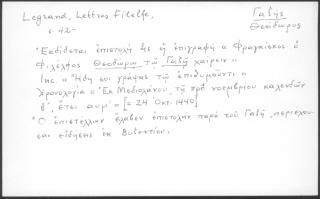 Legrand, Lettres Filelfe,
σ. 42-
Γαζῆς
Θεόδωρος
Ἐκδίδεται ἐπιστολή ἧς ἡ ἐπιγραφή "Φραγκίσκος ὁ
Φιλέλφος Θεοδώρῳ τῷ Γαζῇ χαίρειν"
Inc. "Ἤδη σοι γράψας τῷ ἐπιθυμοῦντι"
Χρονολογία "Ἐκ Μεδιολάνου, τῇ πρὸ νοεμβρίου καλενδῶν
θ', ἔτει αυμ'" [= 24 Οκτ. 1440]
Ὁ ἐπιστέλλων ἔλαβεν ἐπιστολήν παρά τοῦ Γαζῆ, περιέχου-
σαι εἰδήσεις ἐκ Βυζαντίου.